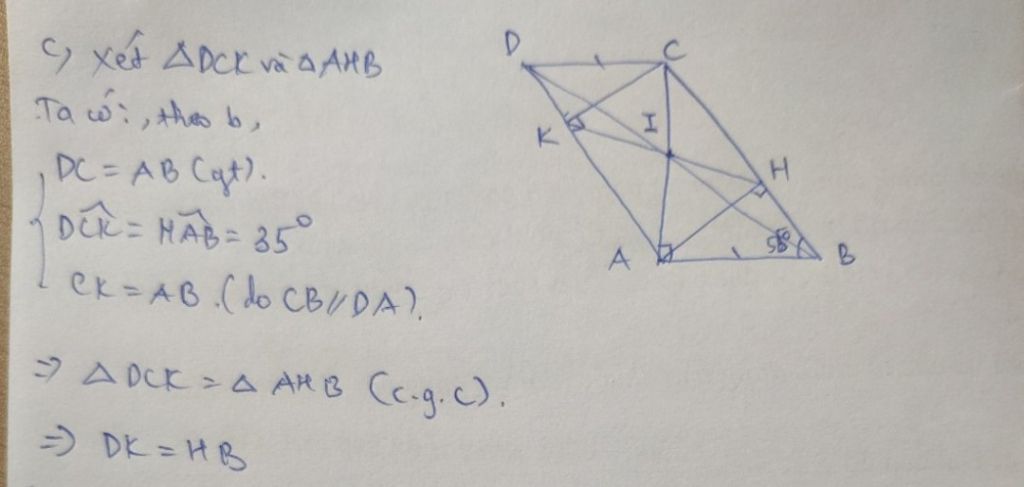 c, xét △DCK và △AHB
Ta có:, theo b,
DC = AB (gt).
DĈK = HÂB = 35°
CK = AB. (do CB // DA).
⇒ △DCK = △AHB (c.g.c).
⇒ DK = HB
D
C
K
I
H
A
B